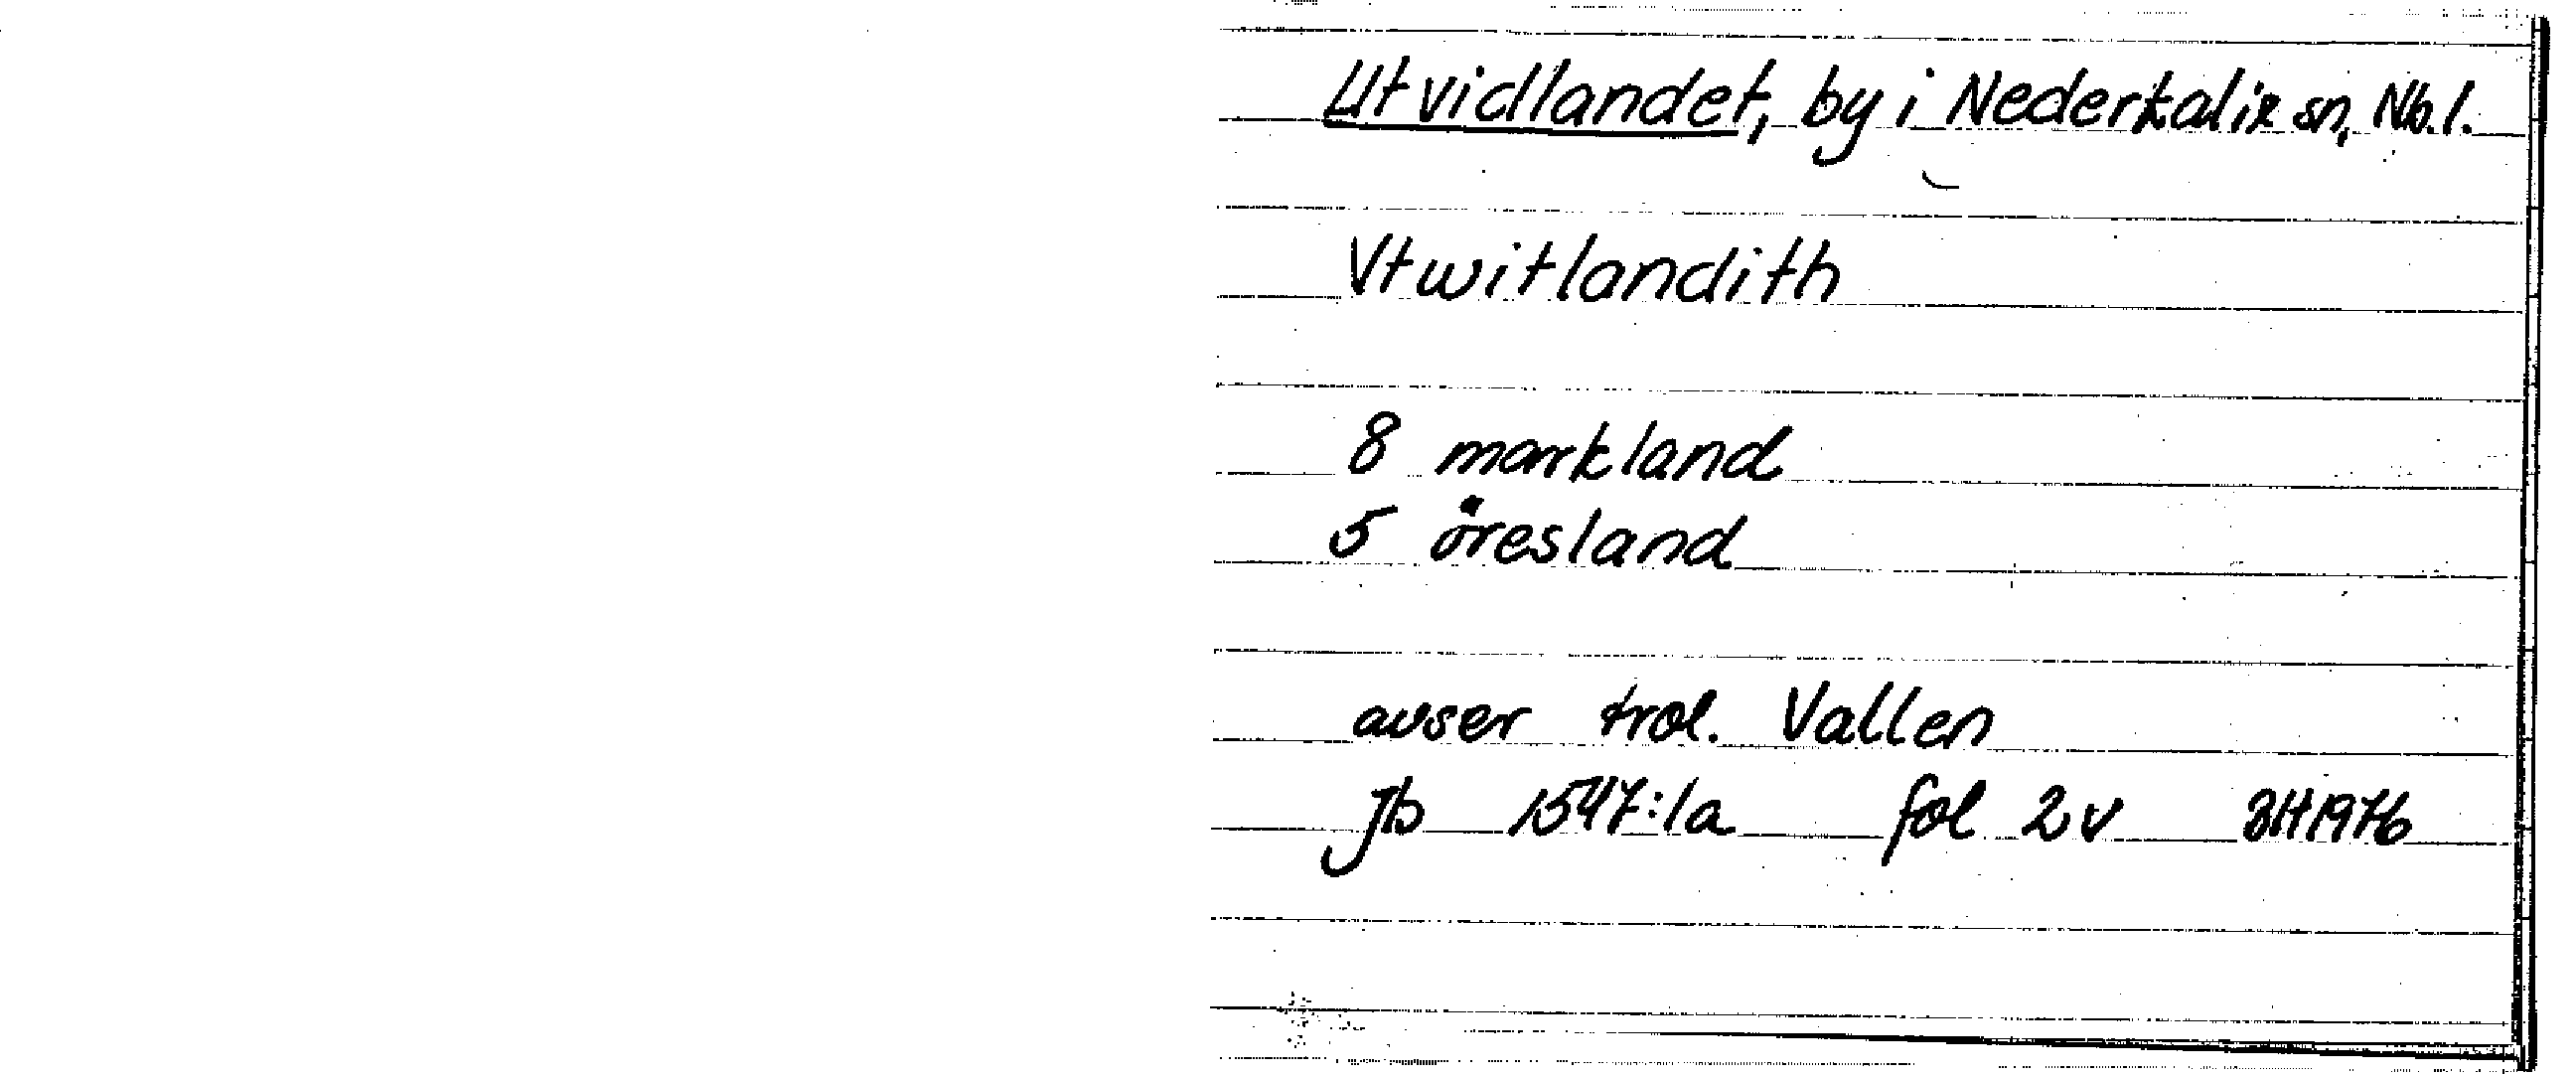 Utvidlandet, by i Nederkalix sn, Nb.l.
Vtwitlandith
8 markland
5 öresland
avser trol. Vallen
Jb 1547:1a fol 2v